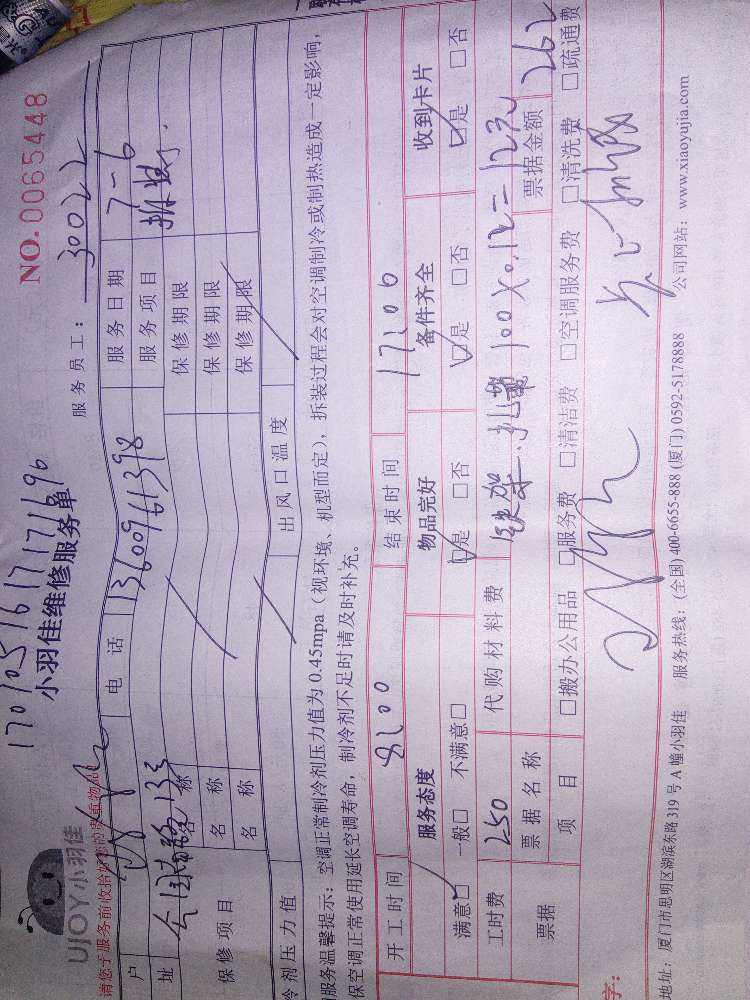 170105161717169
NO.0065448
UJOY小羽佳
小羽佳维修服务单
服务员工： 30022
请您于服务前收拾好您的贵重物品
户
电 话 13600961398 服务日期 7-6
址
服务项目 拆装
保修项目 名 称 保修期限
名 称 保修期限
名 称 保修期限
冷剂压力值 出风口温度
服务温馨提示：空调正常制冷剂压力值为 0.45mpa（视环境、机型而定），拆装过程会对空调制冷或制热造成一定影响，
保空调正常使用延长空调寿命，制冷剂不足时请及时补充。
开工时间 8:00 结束时间 17:00
服务态度 物品完好 备件齐全 收到卡片
满意□ 一般□ 不满意□ □是 □否 □是 □否 □是 □否
工时费 250 代购材料费 100×0.12=12元
票据 票据名称 票据金额 262
项 目 □搬办公用品 □服务费 □清洁费 □空调服务费 □清洗费 □疏通费
字：
地址：厦门市思明区湖滨东路 319 号 A 幢小羽佳 服务热线：(全国)400-6655-888 (厦门)0592-5178888 公司网站：www.xiaoyujia.com